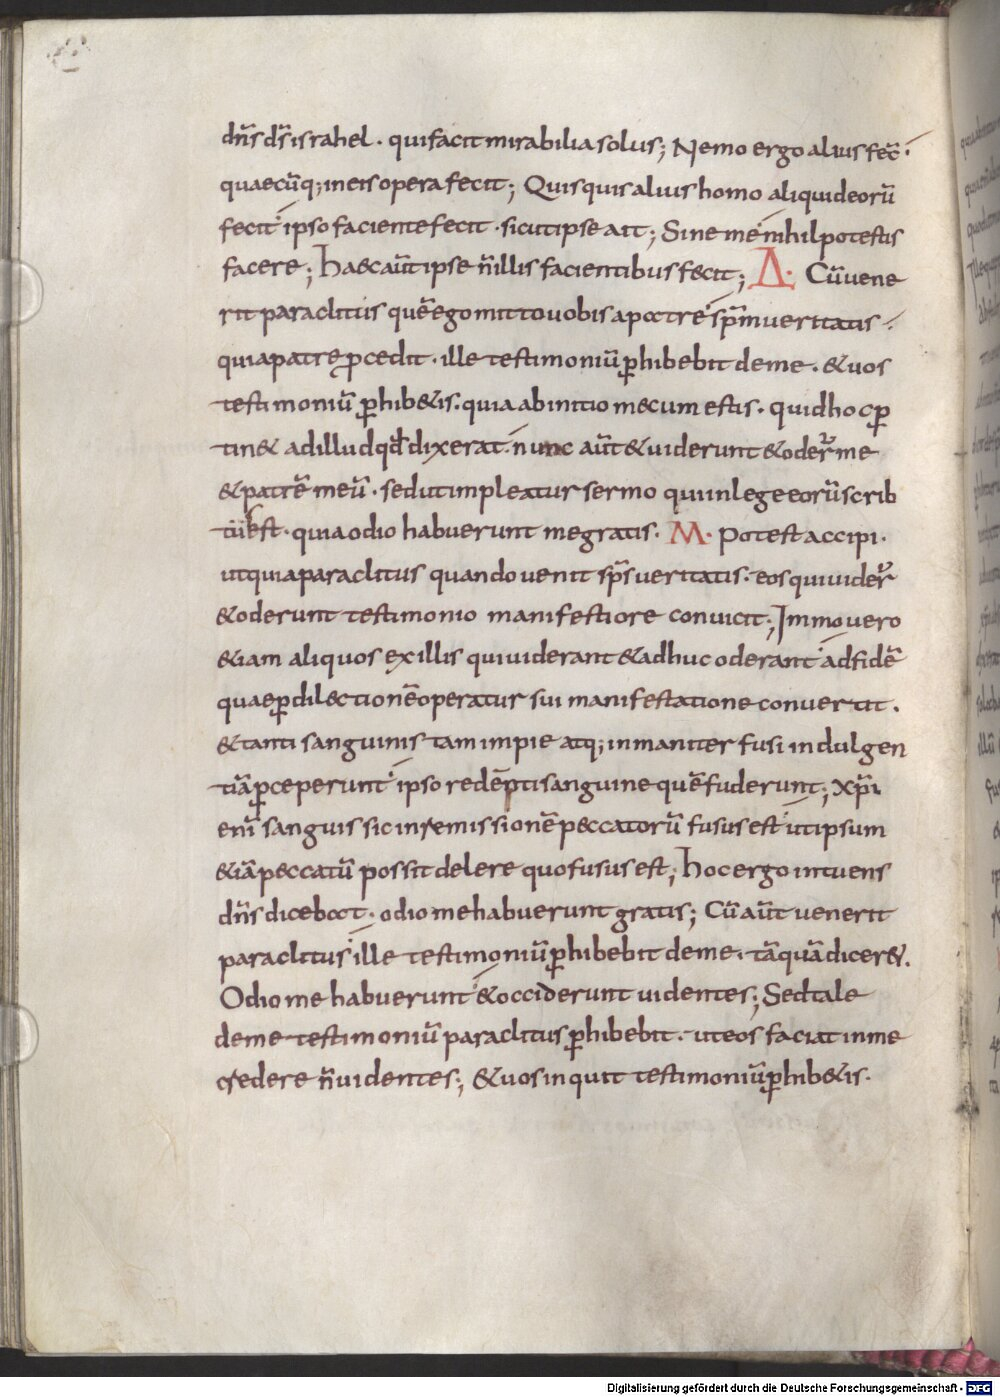 dn̄s ds̄ israhel · qui facit mirabilia solus; Nemo ergo alius fec̄ ·
quaecūq; in eis opera fecit; Quisquis alius homo aliquid eorū
fecit ipso faciente fecit · sicut ipse ait; Sine me nihil potestis
facere; haec aut̄ ipse n̄ illis facientibus fecit; Δ· Cū vene
rit paraclitus quē ego mitto vobis a patre sp̄m veritatis ·
qui a patre ꝓcedit · ille testimoniū ꝑhibebit de me · & vos
testimoniū ꝑhib&is · quia ab initio mecum estis · quid hoc ꝑ
tin& ad illud qd̄ dixerat · nunc aut̄ & viderunt & oder̄ me
& patrē meū · sed ut impleatur sermo qui in lege eorū scrib
tū est · quia odio habuerunt me gratis · M· Potest accipi ·
ut quia paraclitus quando venit sp̄s veritatis · eos qui vider̄
& oderunt testimonio manifestiore convicit; Immo vero
& iam aliquos ex illis qui viderant & adhuc oderant ad fidē
quae ꝑ dilectionē operatur sui manifestatione convertit ·
& tanti sanguinis tam impie atq; inmaniter fusi indulgen
tiā ꝑceperunt ipso redēpti sanguine quē fuderunt; xp̄i
enī sanguis sic in remissionē peccatorū fusus est ut ipsum
& iā peccatū possit delere quo fusus est; hoc ergo intuens
dn̄s dicebat · odio me habuerunt gratis; Cū aut̄ venerit
paraclitus ille testimoniū ꝑhibebit de me · tāquā dicer& ·
Odio me habuerunt & occiderunt videntes; Sed tale
de me testimoniū paraclitus ꝑhibebit · ut eos faciat in me
credere n̄ videntes; & vos inquit testimoniū ꝑhib&is ·
Digitalisierung gefördert durch die Deutsche Forschungsgemeinschaft - DFG